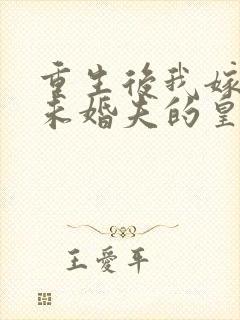 重生後我嫁
未婚夫的皇
王愛平